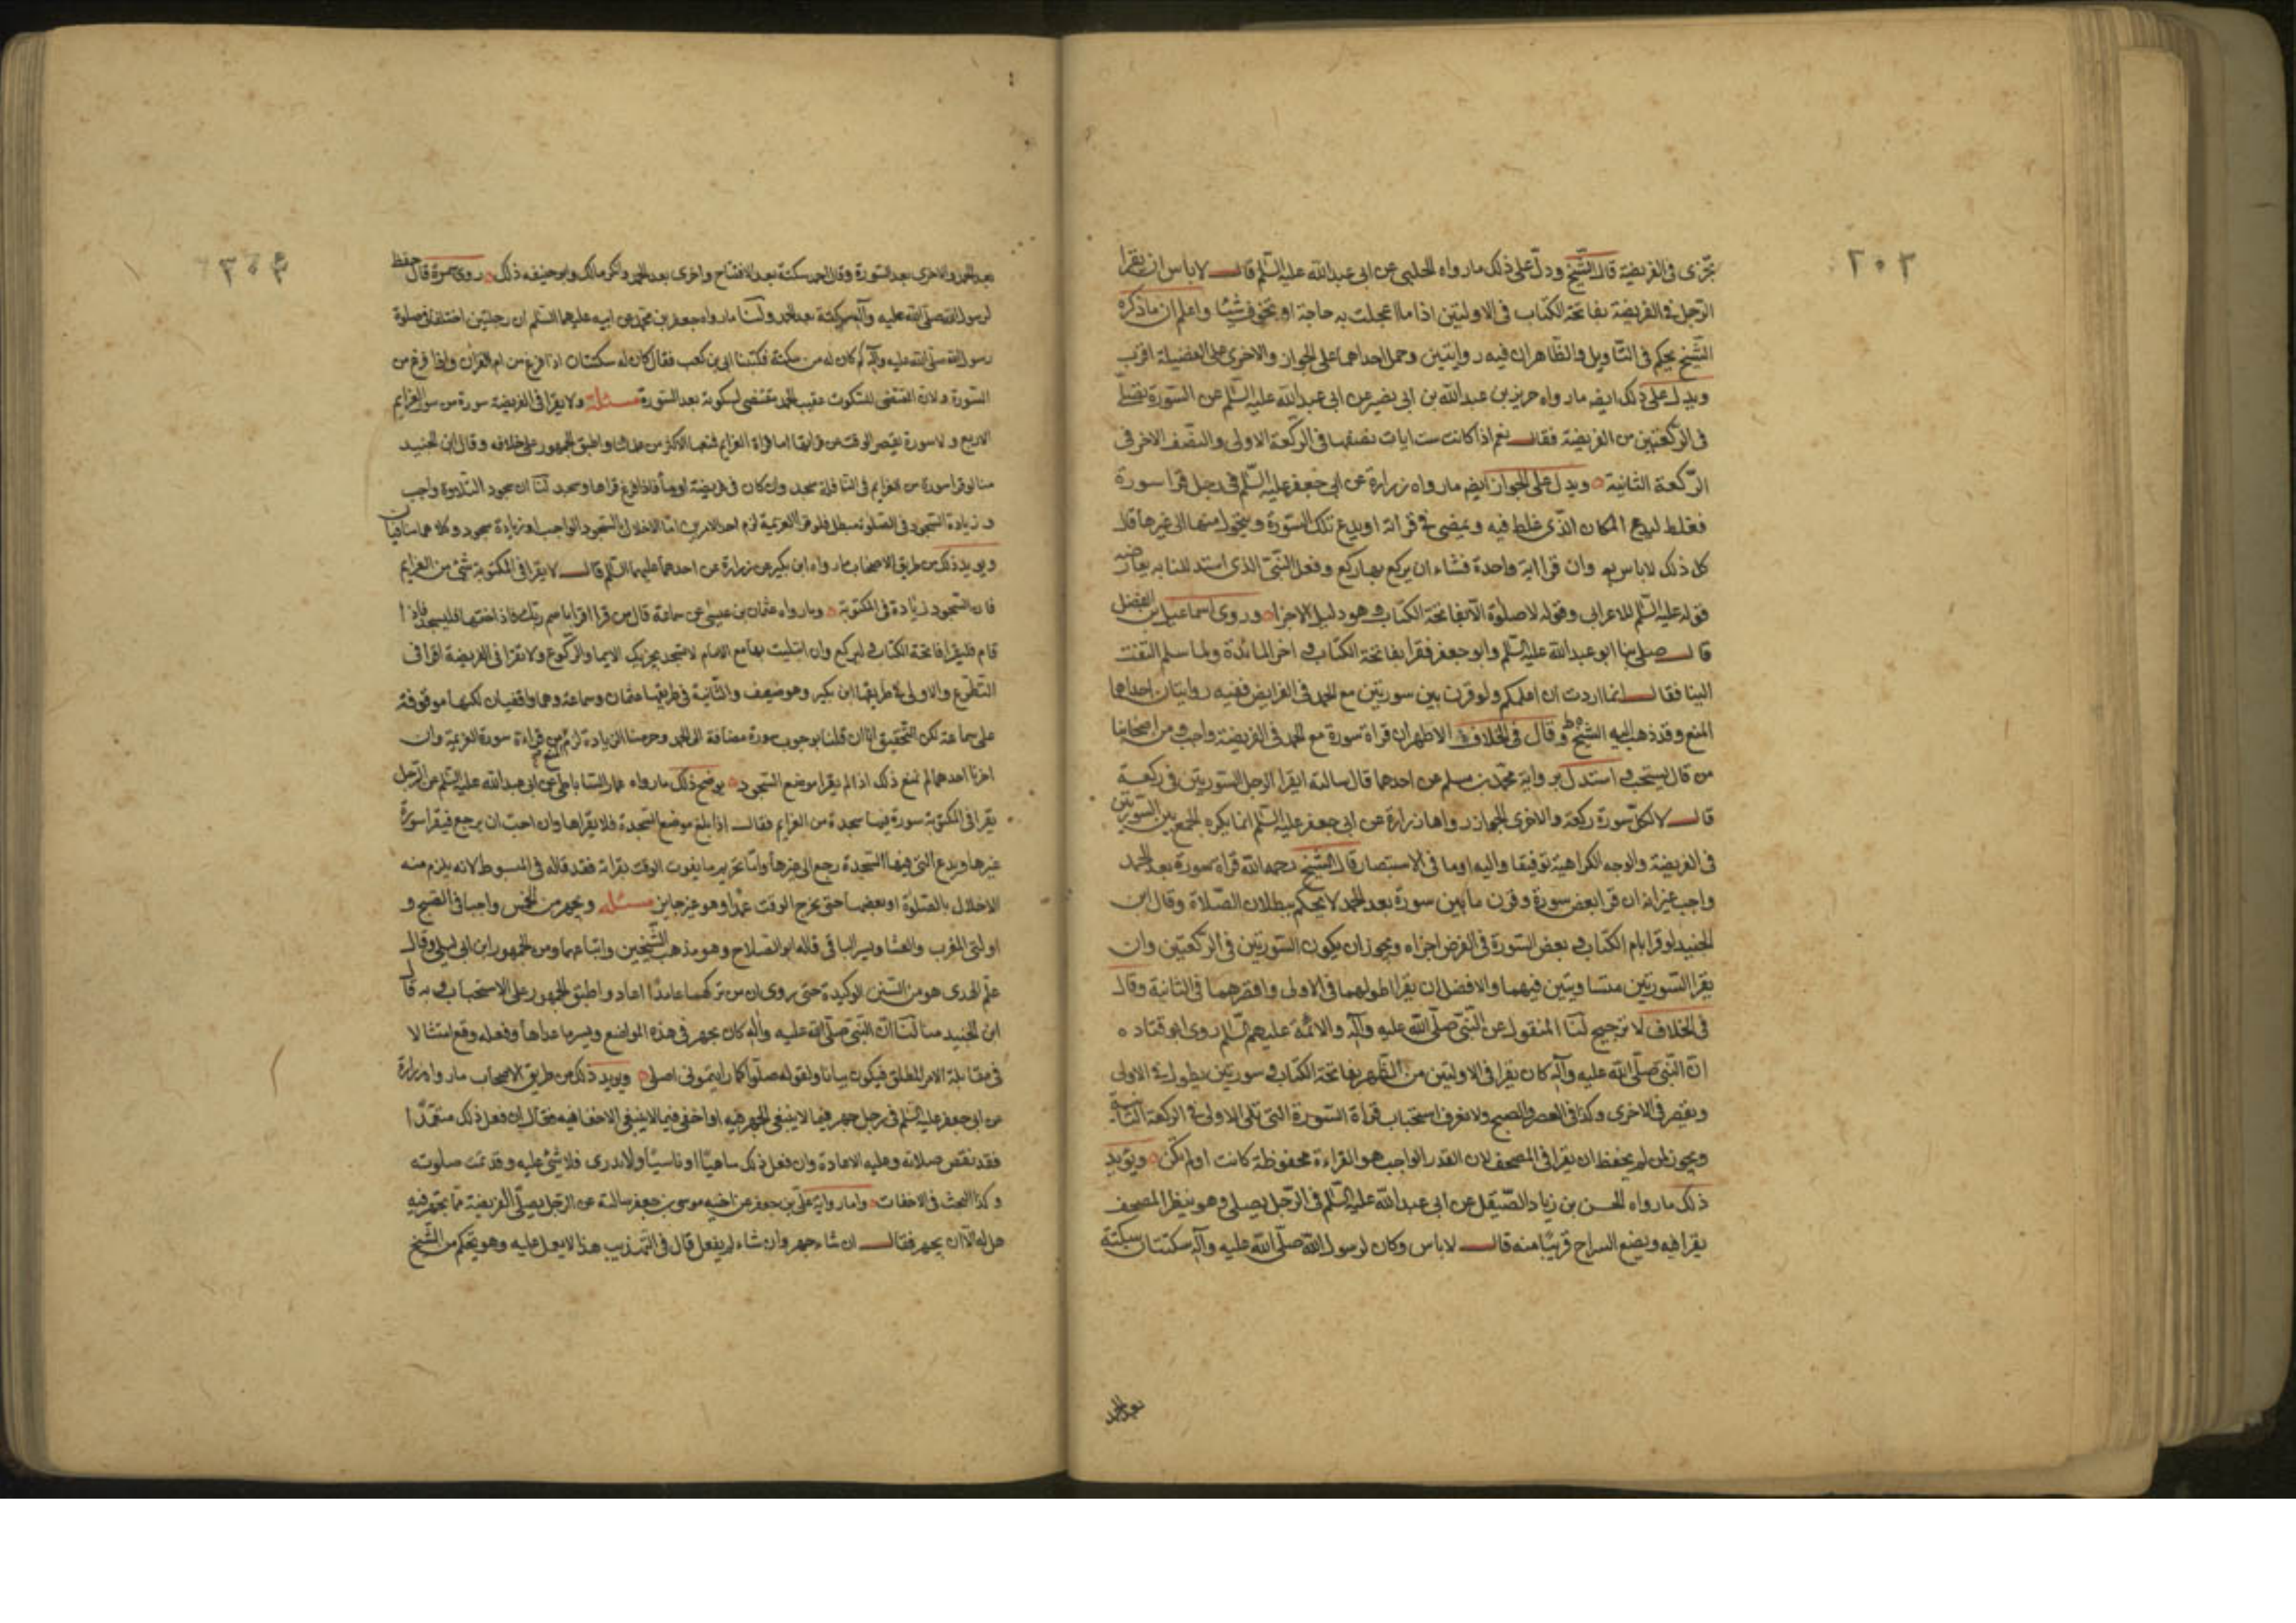 ٢٠٣
تجزى فى الفريضة قال الشيخ ودل على ذلك ما رواه الحلبى عن ابى عبدالله عليه السلم قال لا باس ان يقرا
الرجل فى الفريضة بفاتحة الكتاب فى الاوليتين اذا ما اعجلت به حاجة او تخوف شيئا واعلم ان ما ذكره
الشيخ تحكم فى التاويل والظاهر ان فيه روايتين وحمل احداهما على الجواز والاخرى على الفضيلة اقرب
ويدل على ذلك ايضا ما رواه حريز بن عبدالله بن ابى بصير عن ابى عبدالله عليه السلم عن السورة تصلى
فى الركعتين من الفريضة فقال نعم اذا كانت ست ايات بنصفها فى الركعة الاولى والنصف الاخر فى
الركعة الثانية ويدل على الجواز ايضا ما رواه زرارة عن ابى جعفر عليه السلم فى رجل قرا سورة
فغلط ايدع المكان الذى غلط فيه ويمضى فى قرائته او يدع تلك السورة ويتحول منها الى غيرها قال
كل ذلك لا باس به وان قرا اية واحدة فشاء ان يركع بها ركع وفعل النبى الذى استدللنا به يعارضه
قوله عليه السلم للاعرابى وقوله لا صلوة الا بفاتحة الكتاب هو دليل الاجزاء وروى اسماعيل بن الفضل
قال صلى بنا ابو عبدالله عليه السلم وابو جعفر فقرا بفاتحة الكتاب اخر المائدة ولما سلم التفت
الينا فقال انما اردت ان اعلمكم ولو قرن بين سورتين مع الحمد فى الفرايض ففيه روايتان احداهما
المنع وقد ذهب اليه الشيخ وقال فى الخلاف الاظهر ان قراة سورة مع الحمد فى الفريضة واجب ومن اصحابنا
من قال يستحب استدل برواية محمد بن مسلم عن احدهما قال سالته ايقرا الرجل السورتين فى ركعة
قال لا لكل سورة ركعة والاخرى الجواز رواها زرارة عن ابى جعفر عليه السلم انما يكره الجمع بين السورتين
فى الفريضة والوجه الكراهية توفيقا واليه اوما فى الاستبصار قال الشيخ رحمه الله قراة سورة بعد الحمد
واجب غير انه ان قرا بعض سورة وقرن ما بين سورة بعد الحمد لا يحكم ببطلان الصلاة وقال ابن
الجنيد لو قرا بام الكتاب بعض السورة فى الفرض اجزاه ويجوز ان يكون السورتين فى الركعتين وان
يقرا السورتين متساويتين فيهما والافضل ان يقرا اطولهما فى الاولى واقصرهما فى الثانية وقال
فى الخلاف لا ترجيح لنا المنقول عن النبى صلى الله عليه وآله والائمة عليهم السلم روى ابو قتاده
ان النبى صلى الله عليه وآله كان يقرا فى الاوليتين من الظهر بفاتحة الكتاب سورتين يطول فى الاولى
ويقصر فى الاخرى وكذا فى العصر والصبح ولا نعرف استحباب قراة السورة التى تلى الاولى فى الركعة الثانية
ويجوز لمن لم يحفظ ان يقرا فى المصحف لان القدر الواجب هو القراءة محفوظة كانت او لم تكن ويؤيد
ذلك ما رواه الحسن بن زياد الصيقل عن ابى عبدالله عليه السلم فى الرجل يصلى وهو ينظر المصحف
يقرا فيه ويضع السراج قريبا منه قال لا باس وكان لرسول الله صلى الله عليه وآله سكتتان سكتة
بعد الحمد
بعد الحمد والاخرى بعد السورة وقال احمد سكتة بعد الافتتاح واخرى بعد الحمد وانكر مالك وابو حنيفه ذلك روى سمرة قال حفظ
لرسول الله صلى الله عليه وآله سكتة بعد الحمد ولنا ما رواه جعفر بن محمد عن ابيه عليهما السلم ان رجلين اختلفا فى صلوة
رسول الله صلى الله عليه وآله كم كان له من سكتة فكتبنا ابى بن كعب فقال كان له سكتتان اذا فرغ من ام القران واذا فرغ من
السورة ولان المقتضى للسكوت عقيب الحمد مقتضى لسكوته بعد السورة مسئلة ولا يقرا فى الفريضة سورة من سور العزايم
الاربع ولا سورة يقصر الوقت عن قرائتها اما قراة العزايم فمنعها الاكثر من علمائنا واطبق الجمهور على خلافه وقال ابن الجنيد
منا لو قرا سورة من العزايم فى النافلة سجد وان كان فى فريضة اوما فاذا فرغ قراها وسجد لنا ان سجود التلاوة واجب
وزيادة السجود فى الصلوة مبطل فلو قرا العزيمة لزم احد الامرين اما الاخلال بالسجود الواجب او زيادة سجود وكلاهما منافيان
ويويد ذلك من طريق الاصحاب ما رواه ابن بكير عن زرارة عن احدهما عليهما السلم قال لا يقرا فى المكتوبة شئ من العزايم
فان السجود زيادة فى المكتوبة وما رواه عثمان بن عيسى عن سماعة قال من قرا اقرا باسم ربك فاذا ختمها فليسجد فاذا
قام فليقرا فاتحة الكتاب وليركع وان ابتليت بها مع الامام لا يسجد يجزيك الايما والركوع ولا تقرا فى الفريضة اقرا فى
التطوع والاولى فى طريقها ابن بكير وهو ضعيف والثانية فى طريقها عثمان وسماعة وهما واقفيان لكنها موقوفة
على سماعة لكن التحقيق انا ان قلنا بوجوب سورة مضافة الى الحمد وحرمنا الزيادة لزم المنع من قراءة سورة العزيمة وان
اجزنا احدهما لم نمنع ذلك اذا لم يقرا موضع السجود يوضح ذلك ما رواه عمار الساباطى عن ابى عبدالله عليه السلم عن الرجل
يقرا فى المكتوبة سورة فيها سجدة من العزايم فقال اذا بلغ موضع السجدة فلا يقراها وان احب ان يرجع فيقرا سورة
غيرها ويدع التى فيها السجدة رجع الى غيرها واما تحريم ما يفوت الوقت بقراته فقد قاله فى المبسوط لانه يلزم منه
الاخلال بالصلوة او بعضها حتى يخرج الوقت عمدا وهو غير جايز مسئلة ويجهر من الخمس واجبا فى الصبح و
اولتى المغرب والعشا ويسر الباقى قاله ابو الصلاح وهو مذهب الشيخين واتباعهما ومن الجمهور ابن ابى ليلى وقال
علم الهدى هو من السنن الوكيدة حتى روى ان من تركهما عامدا اعاد واطبق الجمهور على الاستحباب وبه قال
ابن الجنيد منا لنا ان النبى صلى الله عليه وآله كان يجهر فى هذه المواضع ويسر ما عداها وفعله وقع امتثالا
فى مقابلة الامر المطلق فيكون بيانا ولقوله صلوا كما رايتمونى اصلى ويويد ذلك من طريق الاصحاب ما رواه زرارة
عن ابى جعفر عليه السلم فى رجل جهر فيما لا ينبغى الجهر فيه او اخفى فيما لا ينبغى الاخفا فيه فقال ان فعل ذلك متعمدا
فقد نقض صلاته وعليه الاعادة وان فعل ذلك ساهيا او ناسيا او لا يدرى فلا شئ عليه وقد تمت صلوته
وكذا البحث فى الاخفات واما رواية على بن جعفر عن اخيه موسى بن جعفر سالته عن الرجل يصلى الفريضة مما يجهر فيه
هل له الا ان يجهر فقال ان شاء جهر وان شاء لم يفعل قال فى التهذيب هذا لا يعمل عليه وهو تحكم من الشيخ